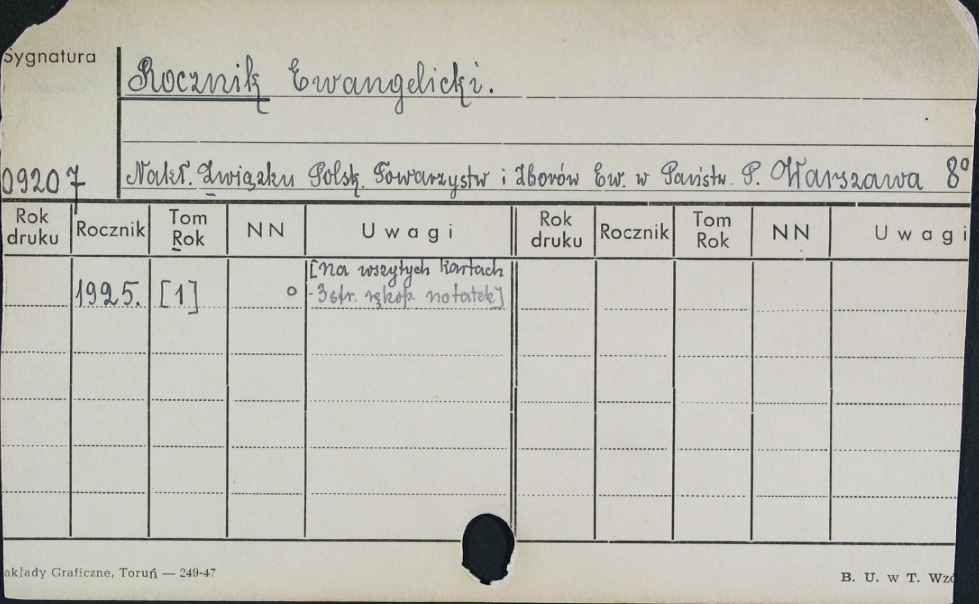 Sygnatura
Rocznik Ewangelicki.
09207
Nakł. Związku Polsk. Towarzystw i Zborów Ew. w Państw. P. Warszawa 8°
Rok druku Rocznik Tom Rok NN Uwagi Rok druku Rocznik Tom Rok NN Uwagi
[Na wszytych kartach
1925. [1] ° - 3 str. rękop. notatek]
akłady Graficzne, Toruń — 249-47
B. U. w T. Wzó